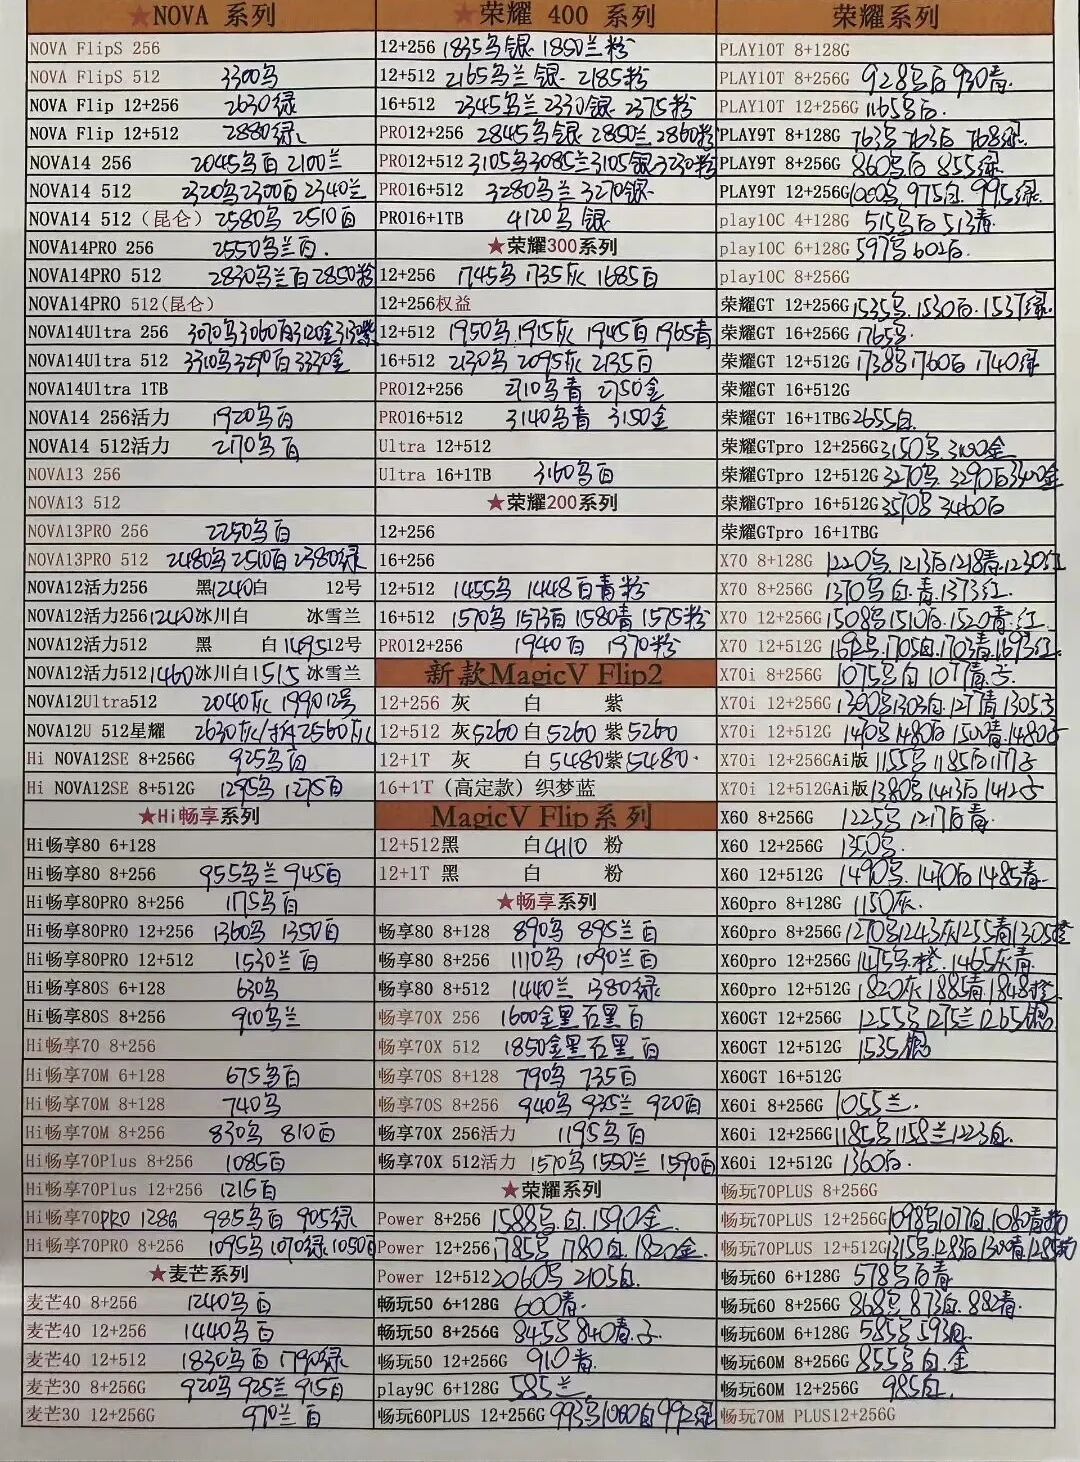 ★NOVA 系列
NOVA FlipS 256
NOVA FlipS 512 3300乌
NOVA Flip 12+256 2630绿
NOVA Flip 12+512 2880绿
NOVA14 256 2045乌百 2100兰
NOVA14 512 2320乌2300百 2340兰
NOVA14 512（昆仑）2580乌 2510百
NOVA14PRO 256 2550乌兰百.
NOVA14PRO 512 2830乌兰百2850粉
NOVA14PRO 512(昆仑)
NOVA14Ultra 256 3070乌3060百3120金3130紫
NOVA14Ultra 512 3310乌3290百3330金
NOVA14Ultra 1TB
NOVA14 256活力 1920乌百
NOVA14 512活力 2170乌百
NOVA13 256
NOVA13 512
NOVA13PRO 256 2250乌百
NOVA13PRO 512 2480乌2510百2380绿
NOVA12活力256 黑1240白 12号
NOVA12活力256 1240冰川白 冰雪兰
NOVA12活力512 黑 白1495 12号
NOVA12活力512 1460冰川白1515冰雪兰
NOVA12Ultra512 2040灰 1990 12号
NOVA12U 512星耀 2630灰/拆2560灰
Hi NOVA12SE 8+256G 925乌百
Hi NOVA12SE 8+512G 1295乌 1275百
★Hi畅享系列
Hi畅享80 6+128
Hi畅享80 8+256 955乌兰945百
Hi畅享80PRO 8+256 1175乌百
Hi畅享80PRO 12+256 1360乌 1350百
Hi畅享80PRO 12+512 1530兰百
Hi畅享80S 6+128 630乌
Hi畅享80S 8+256 910乌兰
Hi畅享70 8+256
Hi畅享70M 6+128 675乌百
Hi畅享70M 8+128 740乌
Hi畅享70M 8+256 830乌 810百
Hi畅享70Plus 8+256 1085百
Hi畅享70Plus 12+256 1215百
Hi畅享70PRO 128G 985乌百 905绿
Hi畅享70PRO 8+256 1095乌1070绿1050百
★麦芒系列
麦芒40 8+256 1240乌百
麦芒40 12+256 1440乌百
麦芒40 12+512 1830乌百1790绿
麦芒30 8+256G 920乌925兰915百
麦芒30 12+256G 970兰百
★荣耀 400 系列
12+256 1835乌银.1850兰粉
12+512 2165乌兰银.2185粉
16+512 2345乌兰2330银.2375粉
PRO12+256 2845乌银.2850兰2860粉
PRO12+512 3105乌3085兰3105银3230粉
PRO16+512 3280乌兰3270银.
PRO16+1TB 4120乌银.
★荣耀300系列
12+256 1745乌1735灰1685百
12+256权益
12+512 1950乌.1915灰1945百1965青
16+512 2130乌2095灰2135百
PRO12+256 2710乌青 2750金
PRO16+512 3140乌青 3150金
Ultra 12+512
Ultra 16+1TB 3160乌百
★荣耀200系列
12+256
16+256
12+512 1455乌 1448百青粉
16+512 1570乌1573百1580青1575粉
PRO12+256 1940百 1970粉
新款MagicV Flip2
12+256 灰 白 紫
12+512 灰5260白5260紫5260
12+1T 灰 白5480紫5480.
16+1T（高定款）织梦蓝
MagicV Flip系列
12+512黑 白4110 粉
12+1T 黑 白 粉
★畅享系列
畅享80 8+128 890乌 895兰百
畅享80 8+256 1110乌1090兰百
畅享80 8+512 1440兰1380绿
畅享70X 256 1600金黑石黑百
畅享70X 512 1850金黑石黑百
畅享70S 8+128 790乌 735百
畅享70S 8+256 940乌 935兰920百
畅享70X 256活力 1195乌百
畅享70X 512活力 1570乌1550兰1590百
★荣耀系列
Power 8+256 1588乌.白.1590金.
Power 12+256 1785乌.1780白.1820金.
Power 12+512 2060乌 2105白.
畅玩50 6+128G 600青.
畅玩50 8+256G 845乌840青.子
畅玩50 12+256G 910青.
play9C 6+128G 585兰.
畅玩60PLUS 12+256G 993乌1000白992绿
荣耀系列
PLAY10T 8+128G
PLAY10T 8+256G 928乌白930青.
PLAY10T 12+256G 1165乌白.
PLAY9T 8+128G 763乌763白768绿.
PLAY9T 8+256G 860乌白855绿
PLAY9T 12+256G 1000乌975白.995绿
play10C 4+128G 515乌白513青
play10C 6+128G 597乌602白.
play10C 8+256G
荣耀GT 12+256G 1535乌.1530白.1537绿.
荣耀GT 16+256G 1765乌.
荣耀GT 12+512G 1738乌1760白1740绿
荣耀GT 16+512G
荣耀GT 16+1TBG 2655白.
荣耀GTpro 12+256G 3150乌.3100金
荣耀GTpro 12+512G 3270乌3290白3400金
荣耀GTpro 16+512G 3570乌3460白
荣耀GTpro 16+1TBG
X70 8+128G 1220乌.1213白1218青.1230红
X70 8+256G 1370乌白.青.1373红.
X70 12+256G 1508乌1510白.1520青.红.
X70 12+512G 1692乌1705白1703青1693红
X70i 8+256G 1075乌白1077青.子.
X70i 12+256G 1300乌1303白.1277青1305子
X70i 12+512G 1470乌1480白1500青.1480子
X70i 12+256GAi版 1155乌1185白1177子
X70i 12+512GAi版 1380乌1413白1412子
X60 8+256G 1225乌1217白青.
X60 12+256G 1350乌.
X60 12+512G 1490乌.1470白1485青.
X60pro 8+128G 1150灰.
X60pro 8+256G 1270乌1243灰1255青1305橙
X60pro 12+256G 1475乌.橙.1465灰青.
X60pro 12+512G 1820灰1885青1848橙
X60GT 12+256G 1255乌1275兰1265银
X60GT 12+512G 1535银
X60GT 16+512G
X60i 8+256G 1055兰.
X60i 12+256G 1185乌1158兰1223白.
X60i 12+512G 1360白.
畅玩70PLUS 8+256G
畅玩70PLUS 12+256G 1098乌1077白.1080青粉
畅玩70PLUS 12+512G 1315乌.1283白1300青.1285粉
畅玩60 6+128G 578乌白青
畅玩60 8+256G 868乌873白.882青.
畅玩60M 6+128G 585乌593白
畅玩60M 8+256G 855乌白.金
畅玩60M 12+256G 985白.
畅玩70M PLUS12+256G